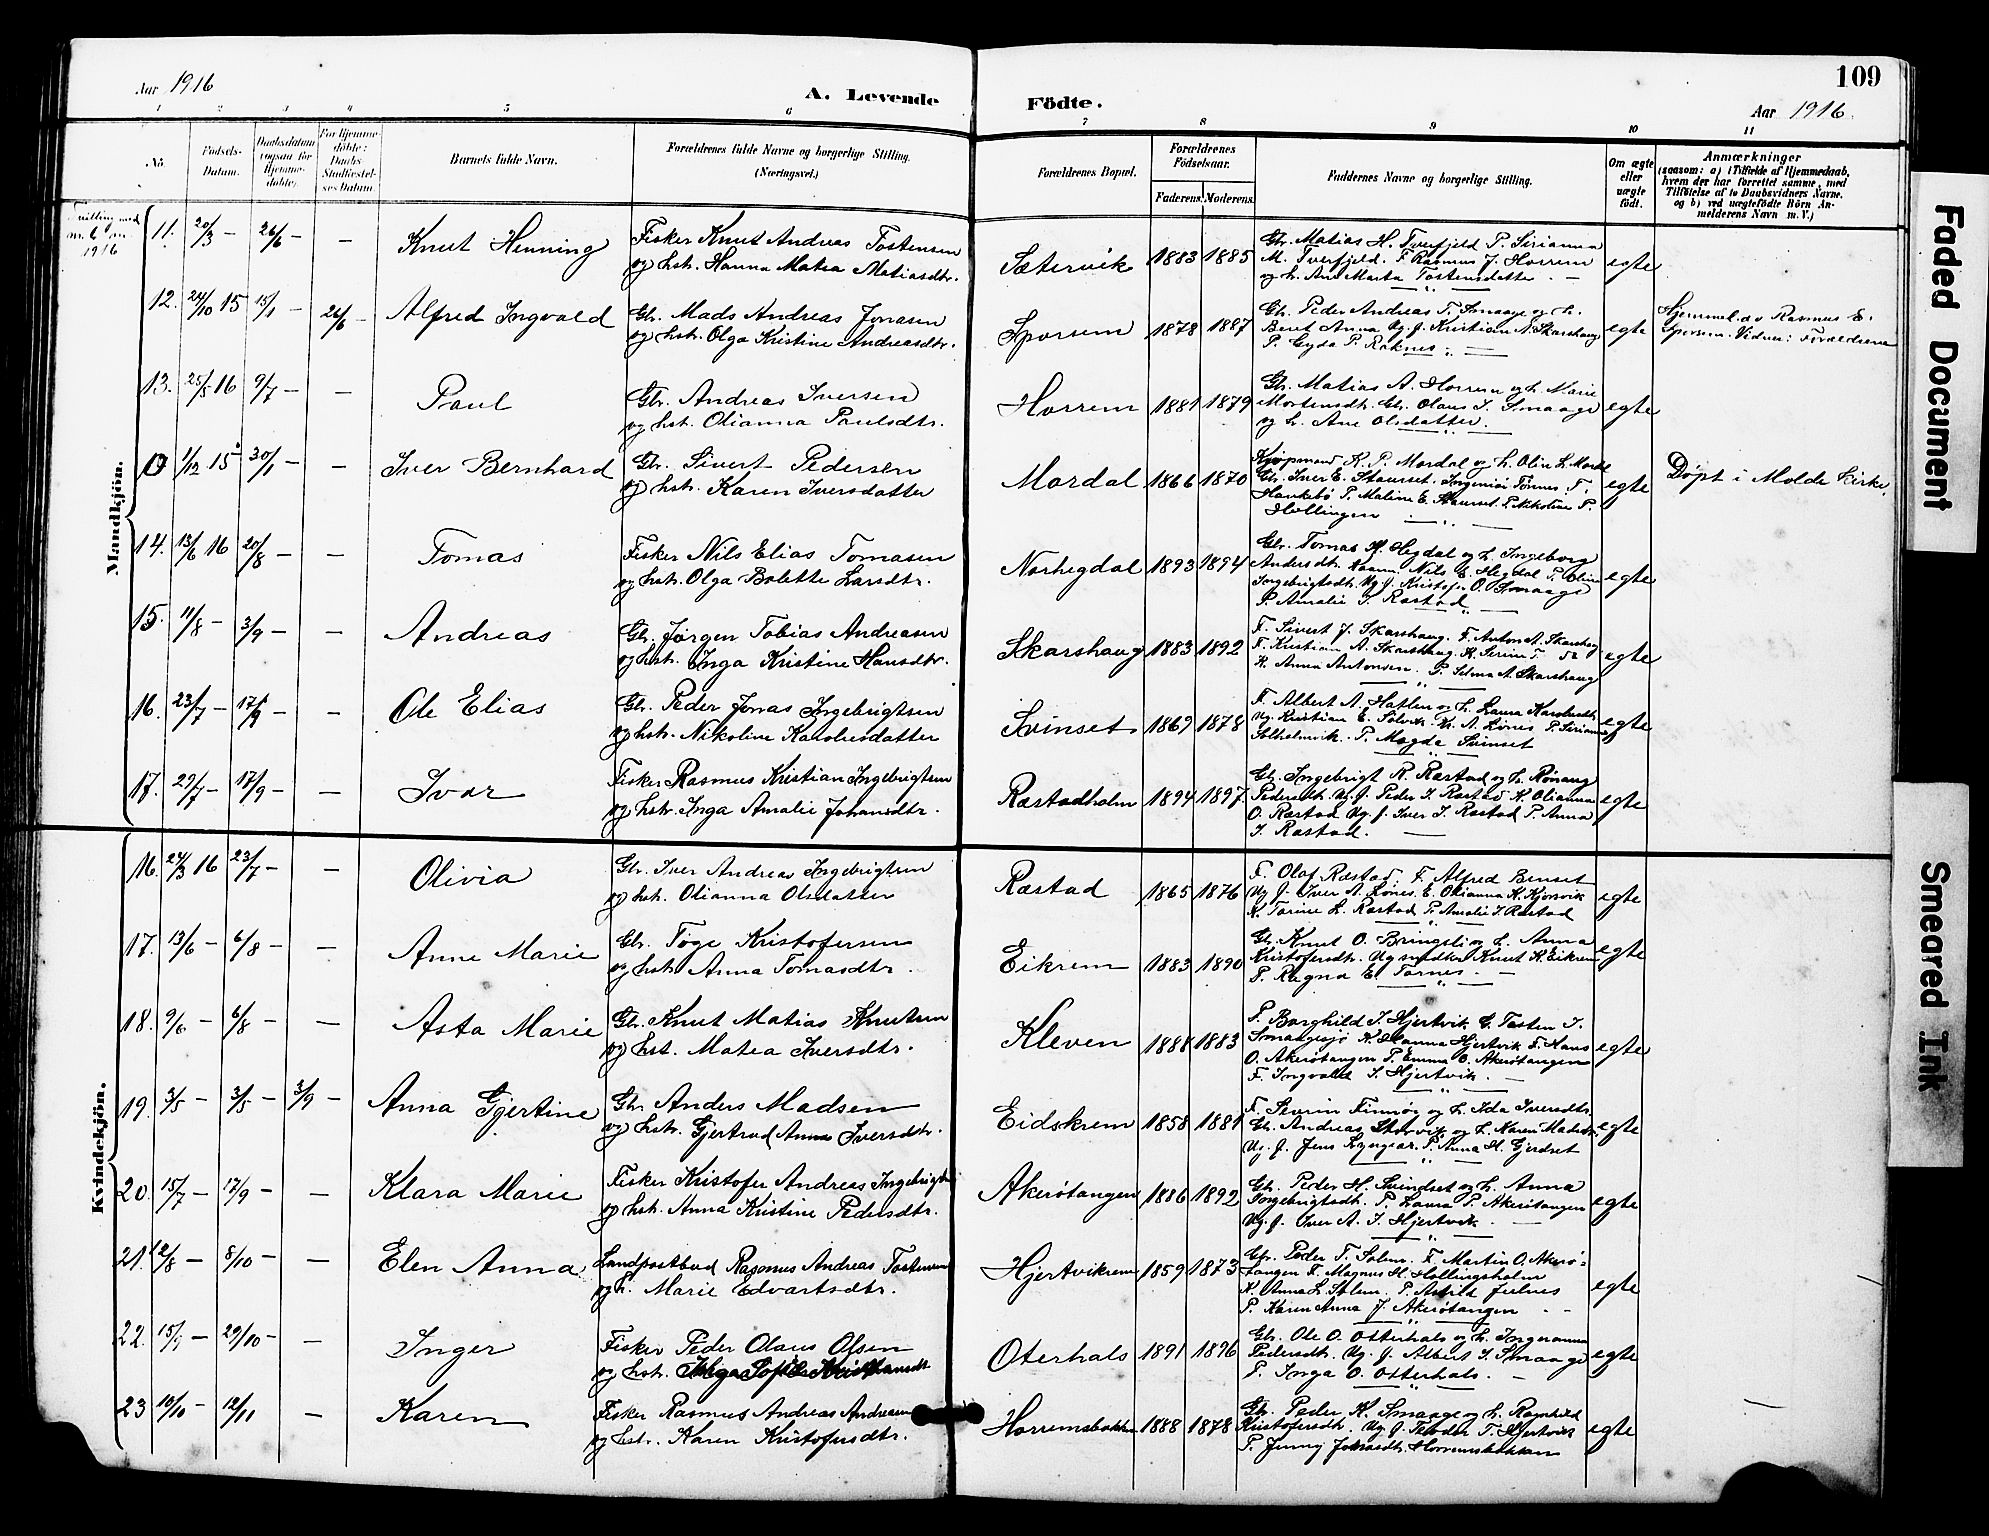 109
Aar 1916
A. Levende
Födte.
Aar 1916.
1 2 3 4 5 6 7 8 9 10 11
No.
Fødsels-
Datum.
Daabsdatum
(ogsaa for
Hjemme-
døbte).
For Hjemme-
døbte:
Daabs-
Stadfæstel-
ses Datum.
Barnets fulde Navn.
Forældrenes fulde Navne og borgerlige Stilling.
(Næringsvei.)
Forældrenes Bopæl.
Forældrenes
Födselsaar.
Faderens. Moderens.
Faddernes Navne og borgerlige Stilling.
Om ægte
eller
uægte
født.
Anmærkninger
(saasom: a) i Tilfælde af Hjemmedaab,
hvem der har forrettet samme, med
Tilføielse af to Daabsvidners Navne.
og b) ved uægtefødte Börn An-
melderens Navn m. V.)
Mandkjön.
Tvilling med
nr. 6
1916
11. 20/3 – 26/6 – – Knut Henning
Fisker Knut Andreas Tostensen
og hstr. Hanna Matea Matiasdtr.
Sætervik 1883 1885
Gbr. Matias H. Tverfjeld P. Sirianna
M. Tverfjeld. F. Rasmus J. Horrem
og h. Ane Marta Tostensdatter. –
egte
12. 24/10 15 15/1 – 26/6 Alfred Ingvald
Gbr. Mads Andreas Jonasen
og hstr. Olga Kristine Andreasdtr.
Sporsem 1878 1887
Gbr. Peder Andreas T. Smaage og h.
Beret Anna Ug. J. Kristian N. Skarshaug
P. Gyda P. Raknes. –
egte
Hjemmed. av Rasmus E.
Sporsem. Vidner: Forældrene
13. 25/5 16 9/7 – – Paul
Gbr. Andreas Iversen
og hstr. Olianna Paulsdtr.
Horrem 1881 1879
Gbr. Matias A. Horrem og h. Marie
Mortensdtr. Gbr. Olaus I. Smaage
og h. Ane Olsdatter.
egte
0 1/12 15 30/1 – – Iver Bernhard
Gbr. Sivert Pedersen
og hstr. Karen Iversdatter
Mordal 1866 1870
Kjøpmand K. P. Mordal og h. Olin L. Mordal
Gbr. Iver E. Staurset. Ingeniør Tønnes F.
Haukebø P. Maline E. Staurset P. Nikoline P.
Hollingen
egte
Døpt i Molde kirke.
14. 13/6 16 20/8 – – Tomas
Fisker Nils Elias Tomasen
og hstr. Olga Bolette Larsdtr.
Norhegdal 1893 1894
Gbr. Tomas N. Hegdal og h. Ingeborg
Andersdtr. Nils E. Hegdal P. Oline
Ingebrigtsdtr. Ug. J. Kristofer O. Smaage
P. Amalie I. Rastad
egte
15. 11/8 – 3/9 – – Andreas
Gbr. Jørgen Tobias Andreasen
og hstr. Inga Kristine Hansdtr.
Skarshaug 1883 1892
F. Sivert J. Skarshaug. F. Anton A. Skarshaug
F. Kristian A. Skarshaug. K. Serine T.
K. Anna Antonsen. P. Selma A. Skarshaug
egte
16. 23/7 – 17/9 – – Ole Elias
Gbr. Peder Jonas Ingebrigtsen
og hstr. Nikoline Karolusdatter
Svinset 1869 1878
F. Albert A. Hatlen og h. Laura Karolusdtr.
Ug. Kristian E. Solvik. Ug. A. Lønes P. Sirianna
Solhelmvik. P. Magda Svinset
egte
17. 29/7 – 17/9 – – Ivar
Fisker Rasmus Kristian Ingebrigtsen
og hstr. Inga Amalie Johansdtr.
Ræstadholm 1894 1897
Gbr. Ingebrigt R. Ræstad og h. Rønaug
Pedersdtr. Ug. J. Peder I. Ræstad K. Olianna
O. Ræstad Ug. J. Iver I. Ræstad P. Anna
I. Ræstad.
egte
Kvindekjön.
16. 24/3 16 23/7 – – Olivia
Gbr. Iver Andreas Ingebrigtsen
og hstr. Olianna Olsdatter
Ræstad 1865 1876
F. Olaf Ræstad. F. Alfred Benset
Ug. J. Iver A. Lønes. E. Olianna K. Kjørsvik
K. Torine L. Ræstad P. Amalie I. Ræstad
egte
17. 13/6 – 6/8 – – Anne Marie
Gbr. Tøge Kristofersen
og hstr. Anna Tomasdtr.
Eikrem 1883 1890
Gbr. Knut O. Bringsli og h. Anna
Kristofersdtr. Ug. snedker Knut K. Eikrem
P. Ragna E. Tornes. –
egte
18. 9/6 – 6/8 – – Asta Marie
Gbr. Knut Matias Knutsen
og hst. Matea Iversdtr.
Kleven 1888 1883
P. Borghild I. Hjertvik G. Tosten I.
Smaagesjø K. Hanna Hjertvik F. Hans
O. Akerøtangen P. Emma O. Akerøtangen
F. Ingvald I. Hjertvik. –
egte
19. 3/5 – 3/5 – 3/9 – Anna Gjertine
Gbr. Anders Madsen
og hstr. Gjertrud Anna Iversdtr.
Eidskrem 1858 1881
F. Severin Finnøy og h. Ida Iversdtr.
Gbr. Andreas Storvik og h. Karen Madsdtr.
Ug. J. Jens Lyngvar. P. Anna H. Gjerdset
egte
20. 15/7 – 17/9 – – Klara Marie
Fisker Kristofer Andreas Ingebrigts
og hstr. Anna Kristine Pedersdtr.
Akerøtangen 1886 1892
Gbr. Peder H. Svindset og h. Anna
Ingebrigtsdtr. P. Laura P. Akerøtangen
Ug. J. Iver A. I. Hjertvik. –
egte
21. 12/8 – 8/10 – – Elen Anna
Landpostbud Rasmus Andreas Tostensen
og h. Marie Edvartsdtr.
Hjertvikrem 1859 1873
Gbr. Peder T. Solem. F. Martin O. Akerø-
tangen F. Magnus H. Hollingsholm
K. Anna L. Solem. P. Astrid Julnes
P. Karen Anna J. Akerøtangen
egte
22. 15/9 – 29/10 – – Inger
Fisker Peder Olaus Olsen
og hstr. Inga Sofie Kristiansdt
Oterhals 1891 1896
Gbr. Ole O. Otterhals og h. Ingeranna
Pedersdtr. Ug. J. Albert I. Smaage
P. Inga O. Otterhals. –
egte
23 10/10 – 12/11 – Karen
Fisker Rasmus Andreas Andreasen
og hstr. Karen Kristofersdtr.
Horremsbakken 1888 1878
Gbr. Peder K. Smaage og h. Ragnhild
Kristofersdtr. Ug. J. Teodor T. Hjertvik
P. Jenny Johansdtr. Horremsbakken
egte
Faded Document
Smeared Ink